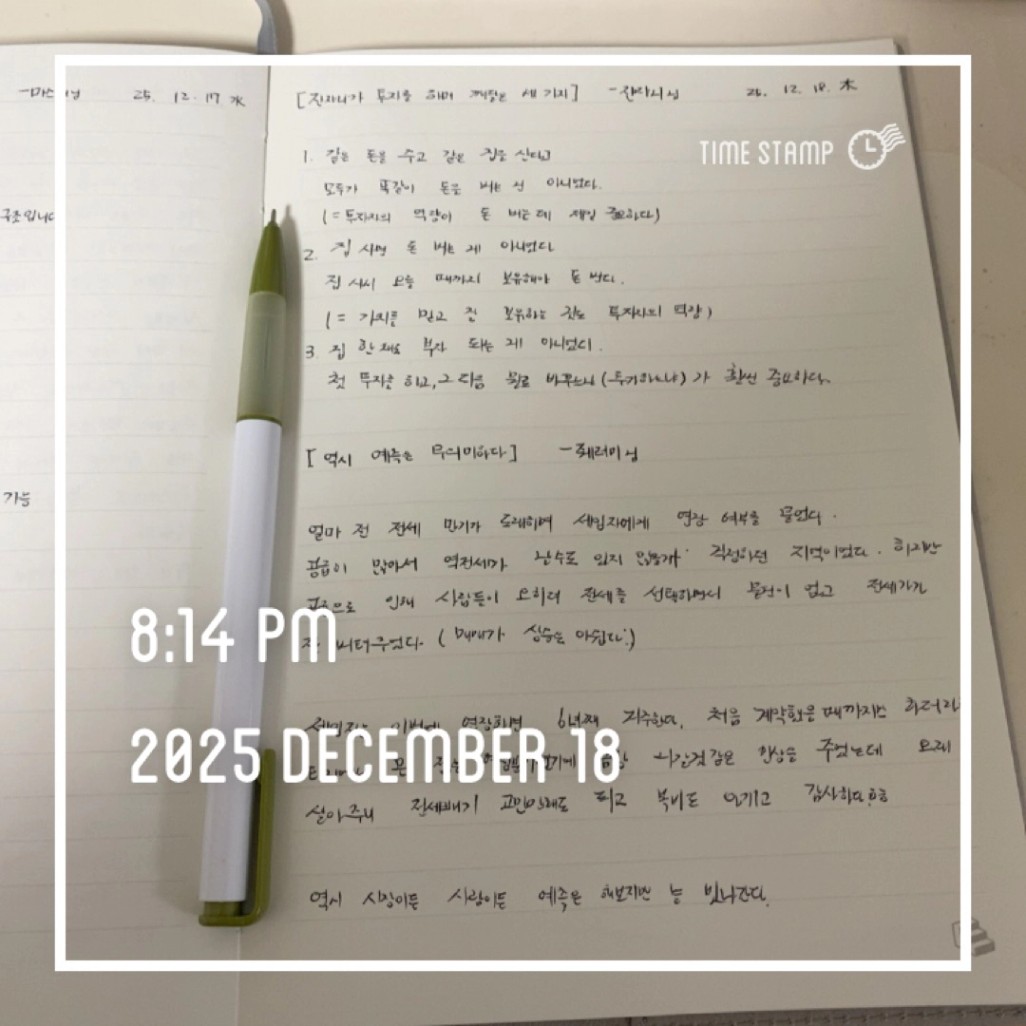 25. 12. 17 水
구조입니다
가능
[ 투자를 하며 깨달은 세 가지 ] 25. 12. 18. 木
TIME STAMP
1. 같은 돈을 주고 같은 집을 산다고
모두가 똑같이 돈을 버는 건 아니었다.
( = 투자자의 역량이 돈 버는데 제일 중요하다)
2. 집 사면 돈 버는 게 아니었다
집 사서 오를 때까지 보유해야 돈 번다.
( = 가치를 믿고 잘 보유하는 것도 투자자의 역량)
3. 집 한 채로 부자 되는 게 아니었다.
첫 투자를 하고, 그 다음 뭘로 바꾸느냐 ( ) 가 훨씬 중요하다.
[ 역시 예측은 무의미하다 ] - 님
얼마 전 전세 만기가 도래하며 세입자에게 연장 여부를 물었다.
공급이 많아서 역전세가 날수도 있지 않을까 걱정하던 지역이었다. 하지만
인해 사람들이 오히려 전세를 선택하면서 물건이 없고 전세가가
잘 버텨주었다. ( 매매가 상승은 아쉽다.)
8:14 PM
이번에 연장하면 6년째 거주한다. 처음 계약했을 때까지만 하더라도
2025 DECEMBER 18
인상을 주었는데 오래
살아주니 전세빼기 고민 덜고 복비도 아끼고 감사하다.
역시 시장이든 사람이든 예측은 해보지만 늘 빗나간다.